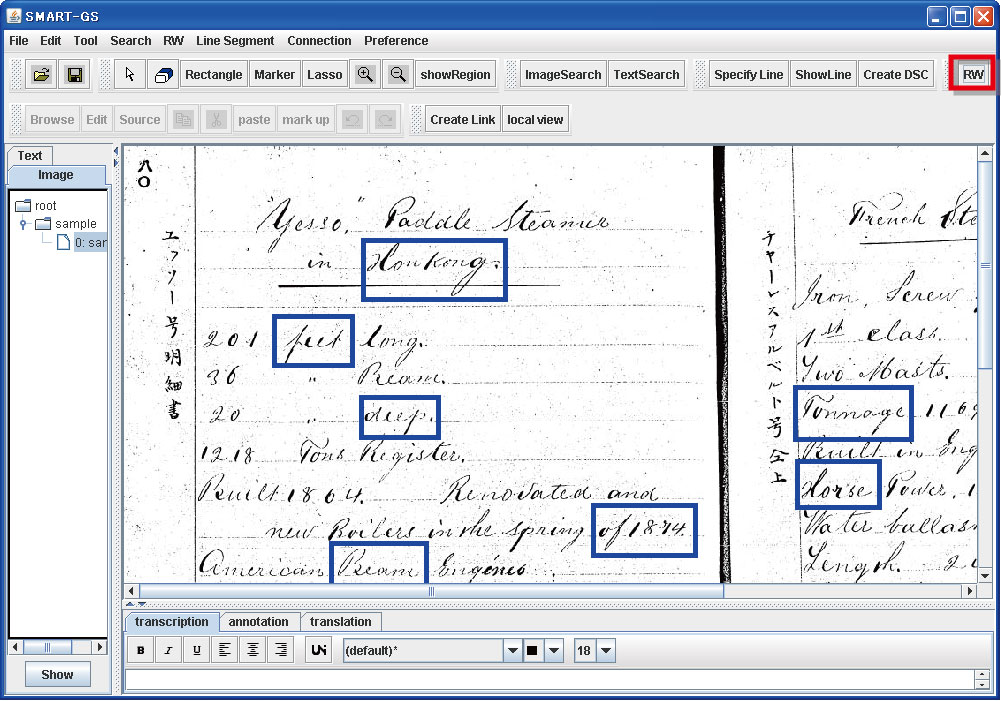 SMART-GS
File Edit Tool Search RW Line Segment Connection Preference
Rectangle Marker Lasso showRegion ImageSearch TextSearch Specify Line ShowLine Create DSC RW
Browse Edit Source paste mark up Create Link local view
Text
Image
root
sample
0: sar
Show
八〇
エッソー号明細書
"Yesso," Paddle Steamer
in Honkong.
201 feet long.
36 " Beam.
20 " deep.
1218 Tons Register.
Built 1864. Renovated and
new Boilers in the spring of 1874.
American Beam Engines
チャーレスアルベルト号仝上
French Ste
Iron, Screw
1st class.
Two Masts.
Tonnage 110
Built in Eng
Horse Power, 1
Water ballas
Length. 2
transcription annotation translation
B I U UN (default)* 18